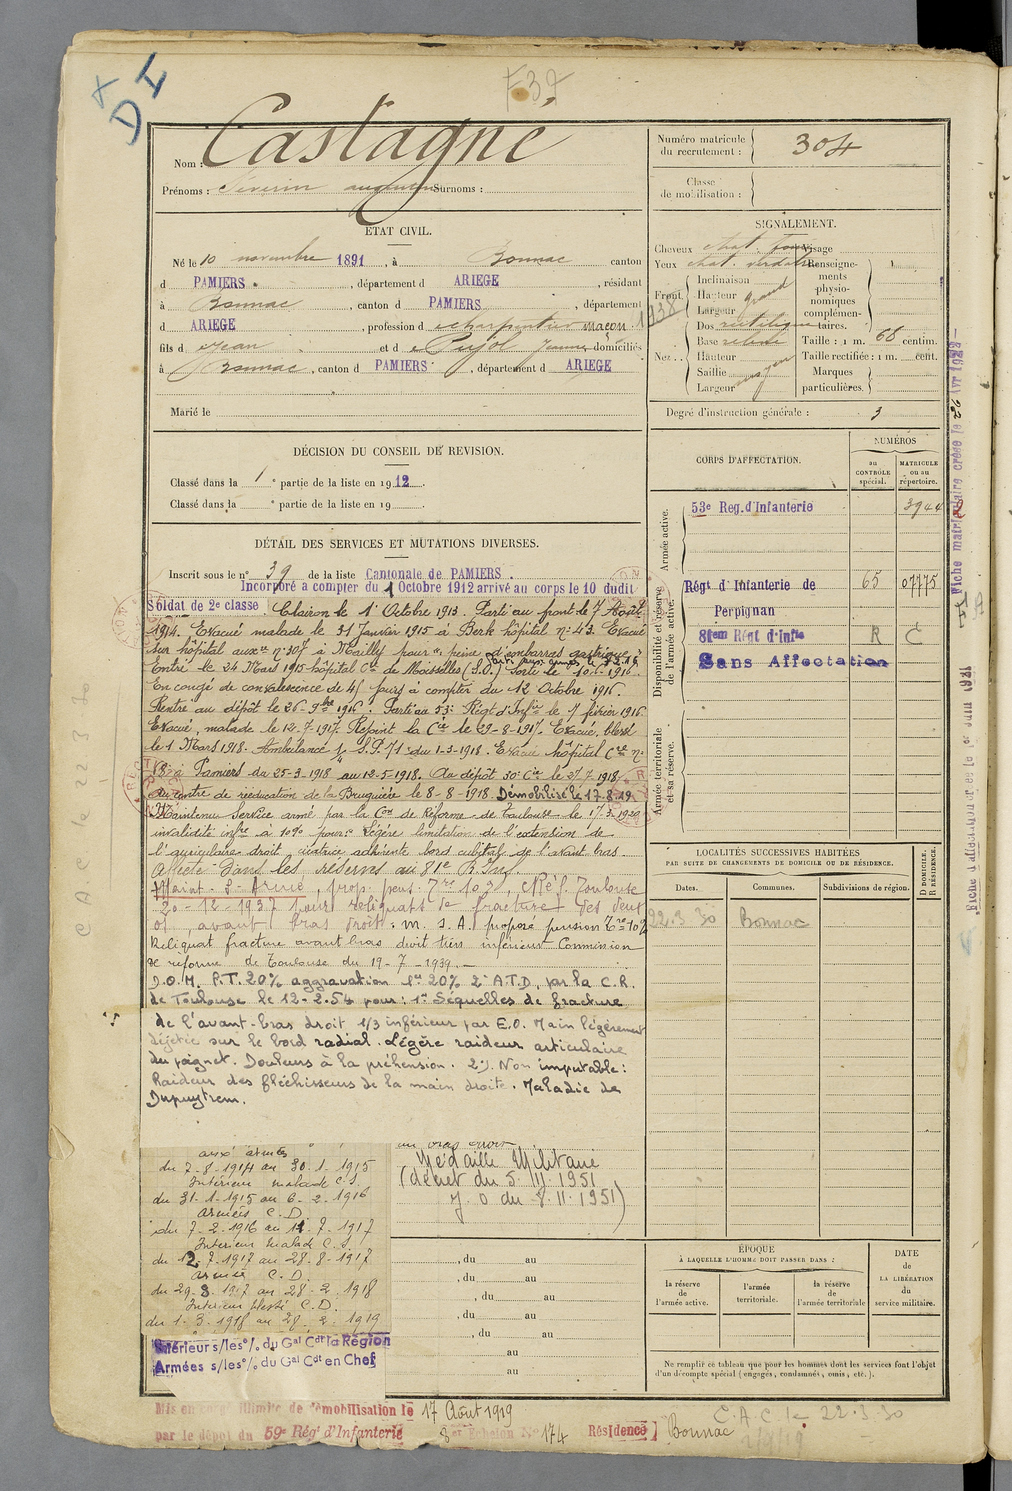 F 37
D I
Nom : Castagné
Prénoms : Séverin Augustin Surnoms :
ÉTAT CIVIL.
Né le 10 novembre 1891, à Bonnac canton
d PAMIERS, département d ARIEGE, résidant
à Bonnac, canton d PAMIERS, département
d ARIEGE, profession d charpentier maçon 1938
fils d Jean et d Pujol Jeanne domiciliés
à Bonnac, canton d PAMIERS, département d ARIEGE
Marié le
DÉCISION DU CONSEIL DE REVISION.
Classé dans la 1e partie de la liste en 1912.
Classé dans la e partie de la liste en 19
DÉTAIL DES SERVICES ET MUTATIONS DIVERSES.
Inscrit sous le n° 39 de la liste Cantonale de PAMIERS.
Incorporé à compter du 1 Octobre 1912 arrivé au corps le 10 dudit
Soldat de 2e classe Clairon le 1er Octobre 1913. Parti au front le 7 Août
1914. Evacué malade le 31 Janvier 1915 à Berk hôpital n° 43. Evacué
sur hôpital auxre n° 307 à Mailly pour peine d'embarras gastrique
Entré le 24 Mars 1915 hôpital Cre de Moisselles (S.O.) Sorti le 10.6.1916.
En congé de convalescence de 45 jours à compter du 12 Octobre 1916.
Rentré au dépôt le 26-9bre 1916. Parti au 53e Régt d'Infie le 7 février 1916
Evacué, malade le 12-7-1917. Rejoint la Cie le 29-8-1917. Evacué, blessé
le 1 Mars 1918. Ambulance 1/ S.P. 71 du 1-3-1918. Evacué hôpital Cre n°
18 à Pamiers du 25-3-1918 au 12-5-1918. Au dépôt 30e Cie le 27-7-1918.
Au Centre de rééducation de la Bruguière le 8-8-1918. Démobilisé le 17.8.19
Maintenu Service armé par la Con de Réforme de Toulouse le 17-3-1920
invalidité infre à 10% pour: Légère limitation de l'extension de
l'auriculaire droit, cicatrice adhérente bord cubital de l'avant bras.
Affecté dans les réserves au 81e R. Inf.
Maint. S. Armé, prop. pens. Tre 10%, C. Réf. Toulouse
20-12-1937 pour reliquats de fracture des deux
os, avant bras droit. m. S. A. proposé pension Tre 10%
Reliquat fracture avant bras droit tiers inférieur Commission
de réforme de Toulouse du 19-7-1939.
D.O.M. P.T. 20% aggravation 1ent 20% 2° A.T.D. par la C.R.
de Toulouse le 12-2-54 pour: 1° Séquelles de fracture
de l'avant-bras droit 1/3 inférieur par E.O. Main légèrement
déjetée sur le bord radial. Légère raideur articulaire
du poignet. Douleurs à la préhension. 2°). Non imputable:
Raideur des fléchisseurs de la main droite. Maladie de
Dupuytrem.
aux armées
du 7-8-1914 au 30-1-1915
Intérieur malade C.S.
du 31-1-1915 au 6-2-1916
armées C.D.
du 7-2-1916 au 11-7-1917
Intérieur malade C.S.
du 12-7-1917 au 28-8-1917
armée C.D.
du 29-8-1917 au 28-2-1918
Intérieur blessé C.D.
du 1-3-1918 au 28-2-1919
Intérieur s/les %. du Gal Cdt la Région
Armées s/les %. du Gal Cdt en Chef
au bras droit
Médaille Militaire
(décret du 5.III.1951
J.O du 8.II.1951)
, du au
, du au
, du au
, du au
, du au
au
au
Mis en congé illimité de démobilisation le 17 Août 1919
par le dépôt du 59e Rég d'Infanterie 8e Echelon No 174 Résidence Bonnac
C.A.C le 22.3.30
Numéro matricule du recrutement : 304
Classe de mobilisation :
SIGNALEMENT.
Cheveux chat. foncé Visage
Yeux chat. verdâtre
Front. Inclinaison
Hauteur grand
Largeur
Nez. Dos rectiligne
Base relevée
Hauteur
Saillie
Largeur moyen
Renseignements physionomiques complémentaires.
Taille : 1 m. 68 centim.
Taille rectifiée : 1 m. cent.
Marques particulières.
Degré d'instruction générale : 3
CORPS D'AFFECTATION.
NUMÉROS
au CONTRÔLE spécial.
MATRICULE ou au répertoire.
Armée active.
53e Reg. d'Infanterie 3944
Disponibilité et réserve de l'armée active.
Régt d'Infanterie de 65 07775
Perpignan
81em Régt d'Infie R C
Sans Affectation
Armée territoriale et sa réserve.
LOCALITÉS SUCCESSIVES HABITÉES
PAR SUITE DE CHANGEMENTS DE DOMICILE OU DE RÉSIDENCE.
Dates. Communes. Subdivisions de région. D DOMICILE. R RÉSIDENCE.
22.3.30 Bonnac
ÉPOQUE
À LAQUELLE L'HOMME DOIT PASSER DANS :
la réserve de l'armée active.
l'armée territoriale.
la réserve de l'armée territoriale
DATE de LA LIBÉRATION du service militaire.
Ne remplir ce tableau que pour les hommes dont les services font l'objet
d'un décompte spécial (engagés, condamnés, omis, etc.).
C.A.C le 22 3 30